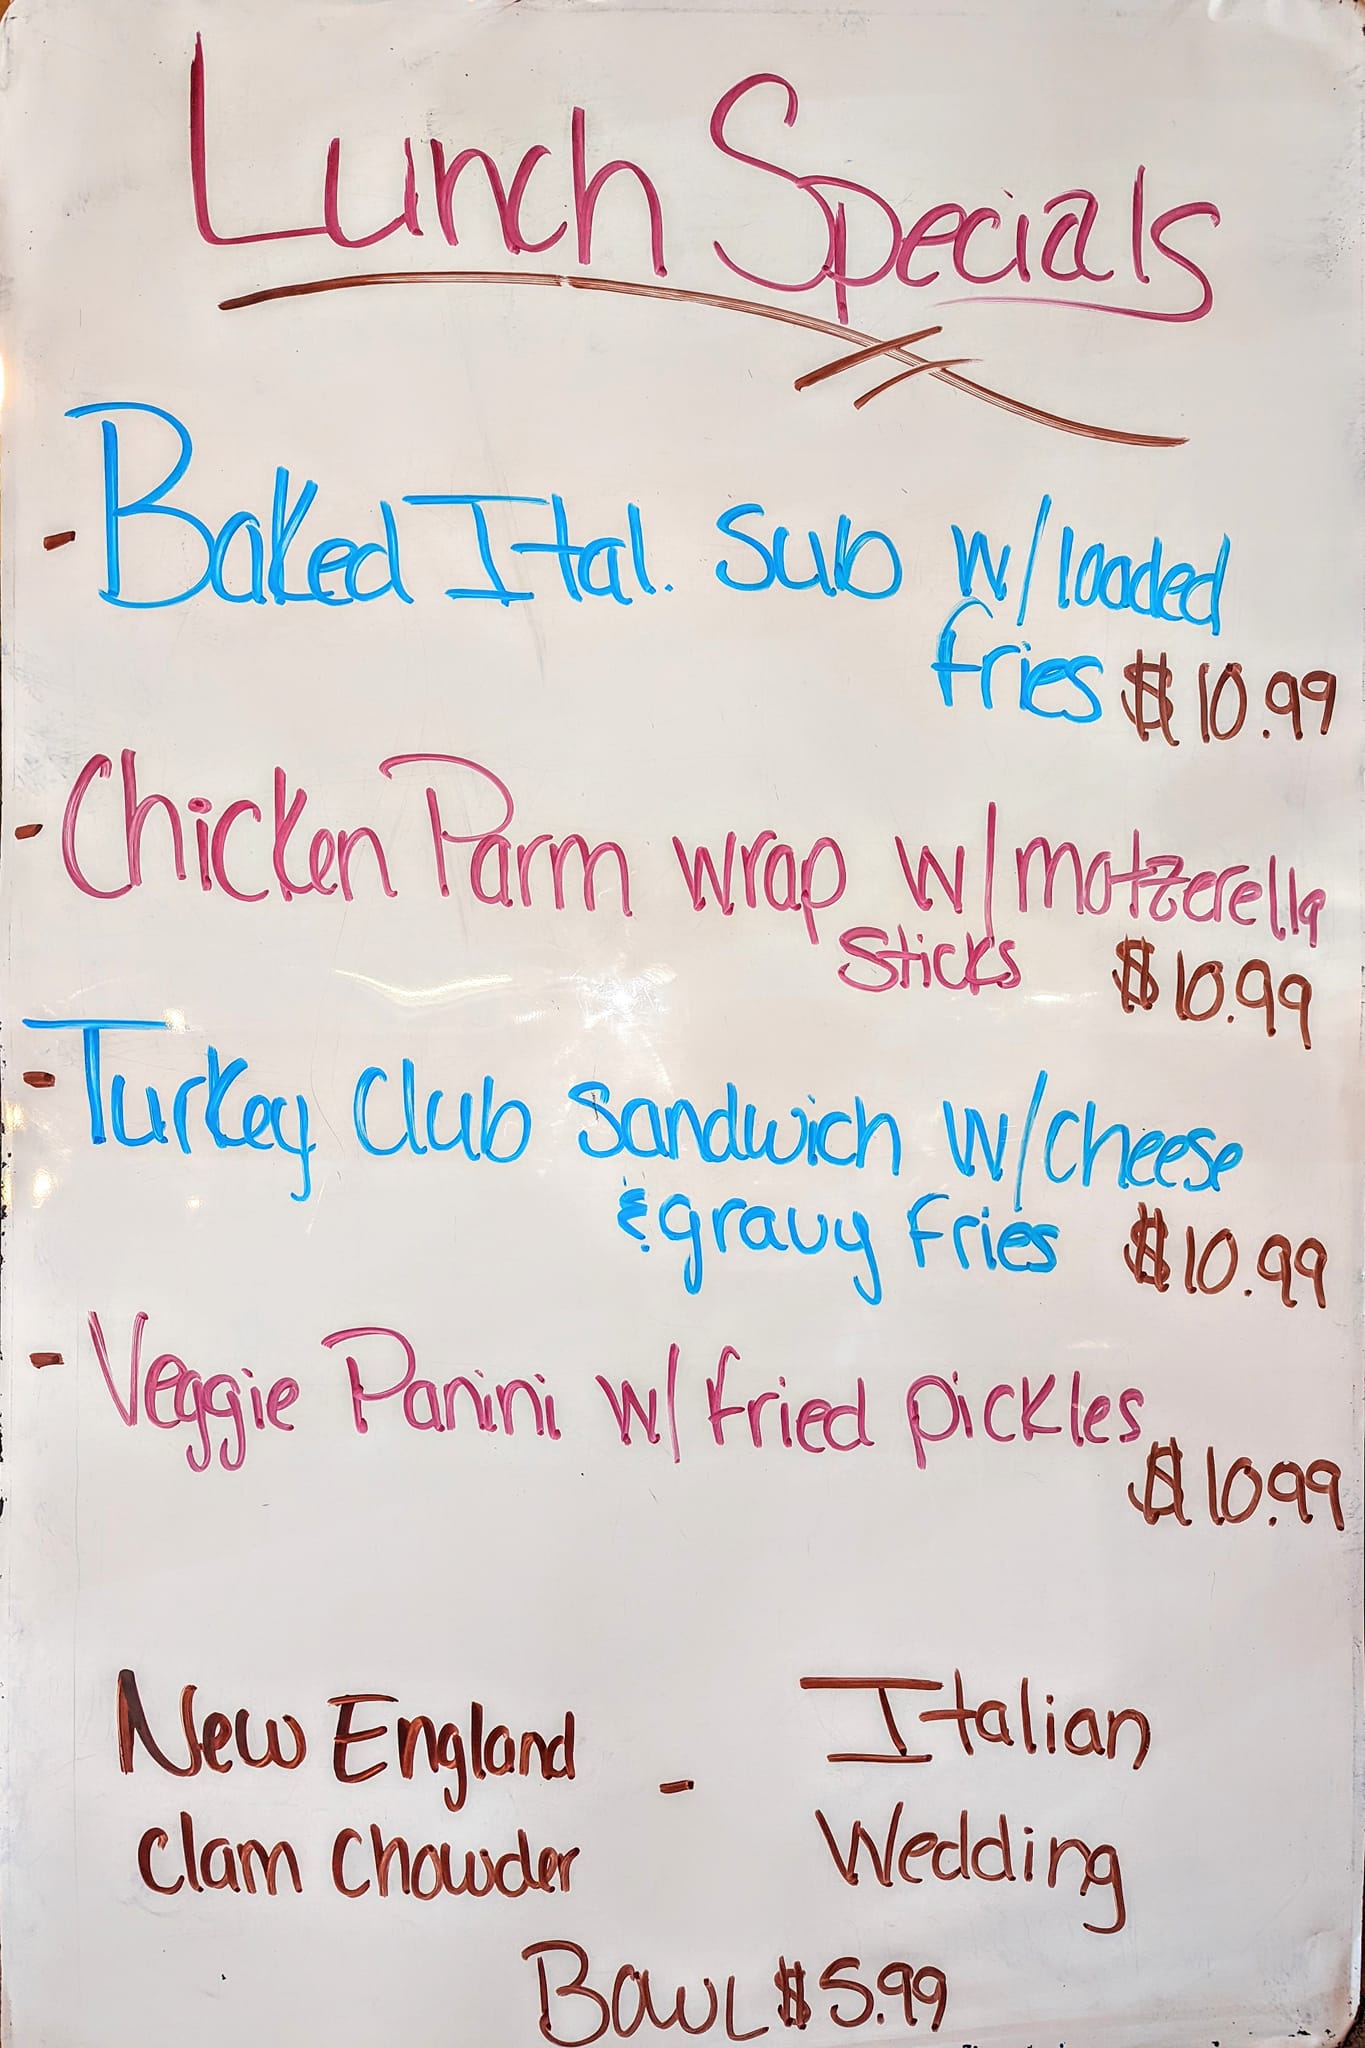 Lunch Specials
- Baked Ital. Sub w/loaded
fries $10.99
- Chicken Parm wrap w/motzerella
sticks $10.99
- Turkey Club Sandwich w/cheese
& gravy fries $10.99
- Veggie Panini w/ fried pickles
$10.99
New England - Italian
Clam Chowder Wedding
Bowl $5.99